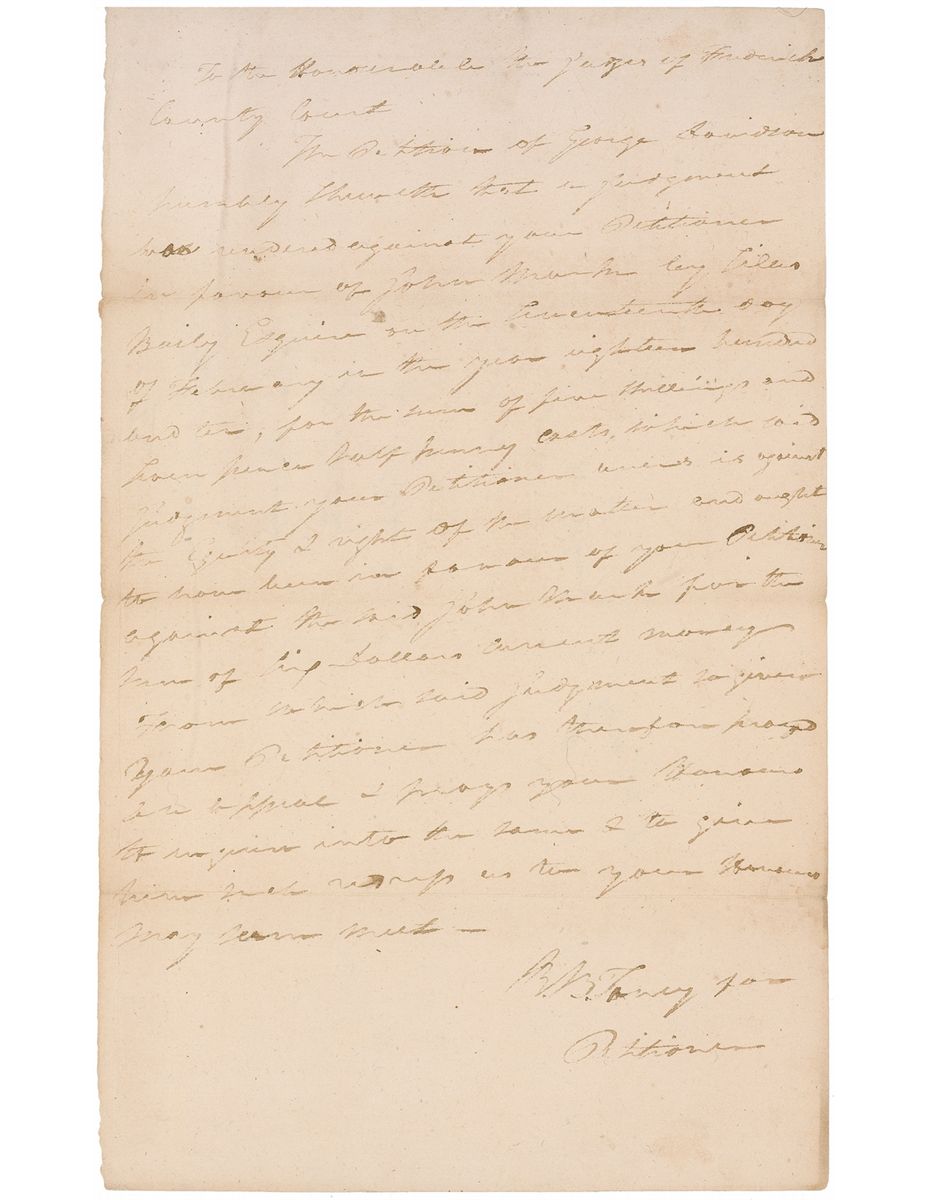 To the Honourable the Judges of Frederick
County Court
The Petition of George Davidson
humbly Sheweth that a Judgment
was rendered against your Petitioner
in favour of John by
Baily Esquire on the Seventeenth day
of February in the year eighteen hundred
and ten, for the sum of five Shillings and
pence half penny costs, which said
Judgment your Petitioner avers is against
the Equity & right of the matter and ought
to have been in favour of your Petitioner
against the said John for the
sum of Six Dollars current money
From which said Judgment so given
Your Petitioner has therefore prayed
an appeal & prays your Honours
to enquire into the same & to give
him such redress as to your Honours
may seem meet —
R. B. Taney for
Petitioner